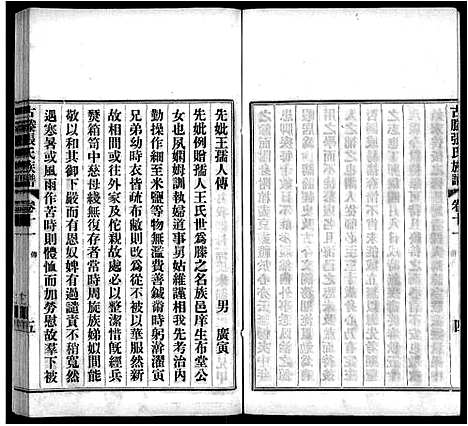 古滕張氏族譜 卷十一
四
先妣王孺人傳
男 廣寅
先妣例贈孺人王氏世爲滕之名族邑庠生布堂公
女也夙嫻姆訓執婦道事舅姑維謹相我先考治內
勤操作細至米鹽等物無濫費善鍼黹時躬澣濯寅
兄弟幼時衣飾或布敝則改製從不被以華服然新
故相因家居及佗親故處必以整潔惜旣經兵
燹箱笥中慈母縷線無復存者常時周旋族娣姒間能
敬以和其御下嚴而有恩奴婢有過譴責不稍寬然
遇寒暑或風雨作苦時則體恤而加勞慰故羣下被
古滕張氏族譜 卷十一 傳
五